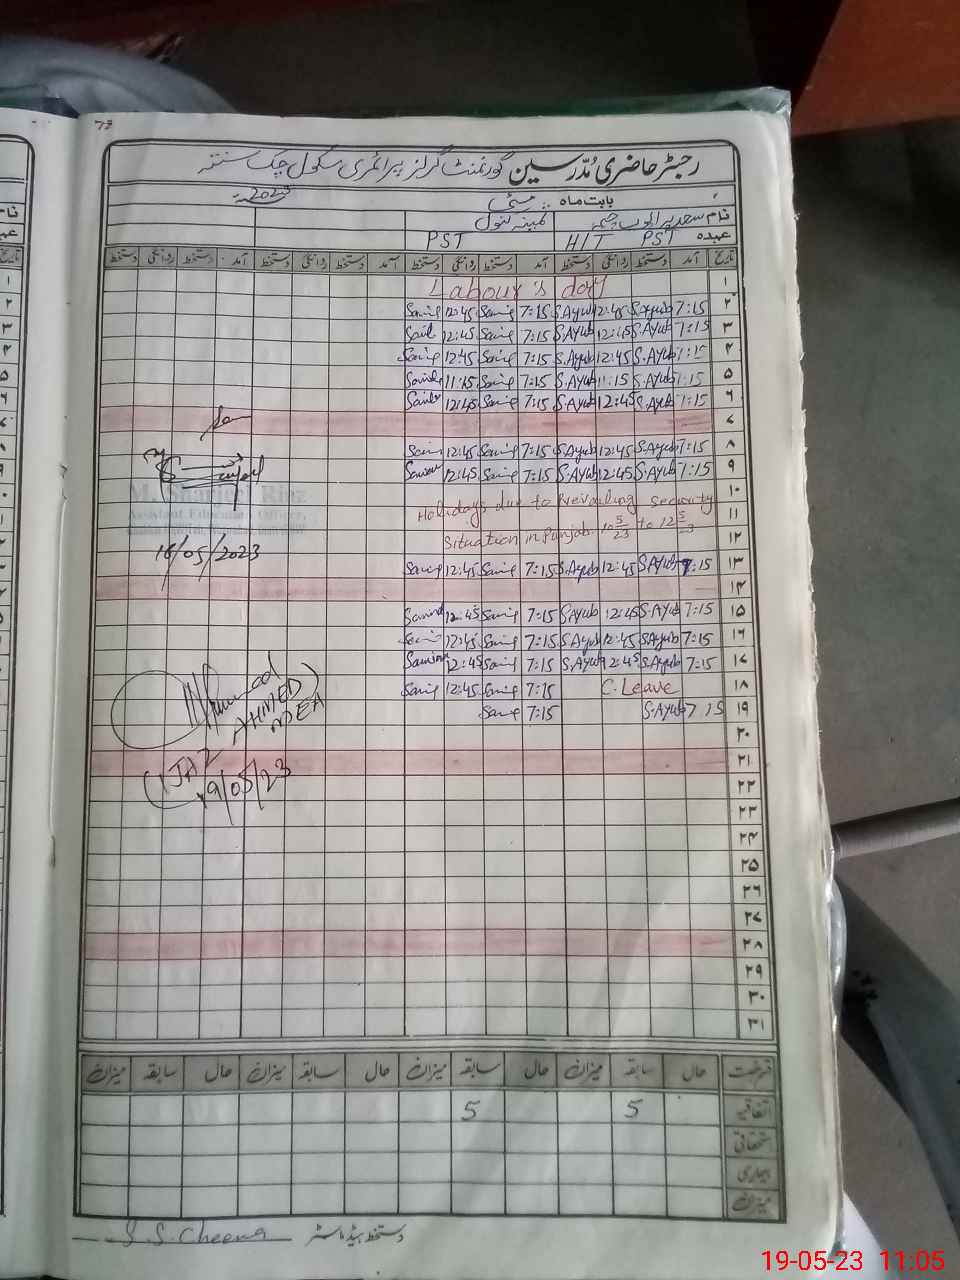 رجسٹر حاضری مُدّرسین گورنمنٹ گرلز پرائمری سکول چک سنتہ
بابت ماہ مئی 2023
نام سعدیہ ایوب چیمہ
عہدہ PST HIT PST
تاریخ آمد دستخط روانگی دستخط آمد دستخط روانگی دستخط آمد دستخط روانگی دستخط آمد دستخط روانگی دستخط
۱ Labour's day
۲ 7:15 S.Ayub 12:45 S.Ayub 7:15 12:45
۳ 7:15 S.Ayub 12:45 S.Ayub 7:15 12:45
۴ 7:15 S.Ayub 12:45 S.Ayub 7:15 12:45
۵ 7:15 S.Ayub 11:15 S.Ayub 7:15 11:15
۶ 7:15 S.Ayub 12:45 S.Ayub 7:15 12:45
۷
۸ 7:15 S.Ayub 12:45 S.Ayub 7:15 12:45
۹ 7:15 S.Ayub 12:45 S.Ayub 7:15 12:45
۱۰ Holidays due to Prevailing security
۱۱ Situation in Punjab. 10 5/23 to 12 5/23
۱۲
۱۳ 7:15 S.Ayub 12:45 S.Ayub 7:15 12:45
۱۴
۱۵ 7:15 S.Ayub 12:45 S.Ayub 7:15 12:45
۱۶ 7:15 S.Ayub 12:45 S.Ayub 7:15 12:45
۱۷ 7:15 S.Ayub 12:45 S.Ayub 7:15 12:45
۱۸ C. Leave 7:15 12:45
۱۹ 7:15 S.Ayub 7:15
۲۰
۲۱
۲۲
۲۳
۲۴
۲۵
۲۶
۲۷
۲۸
۲۹
۳۰
۳۱
Assistant Education Officer,
16/05/2023
(IJAZ AHMED)
19/05/23
رخصت حال سابقہ میزان حال سابقہ میزان حال سابقہ میزان حال سابقہ میزان
اتفاقیہ 5 5
استحقاقی
بیماری
میزان
دستخط ہیڈ ماسٹر S.S.Cheema
19-05-23 11:05